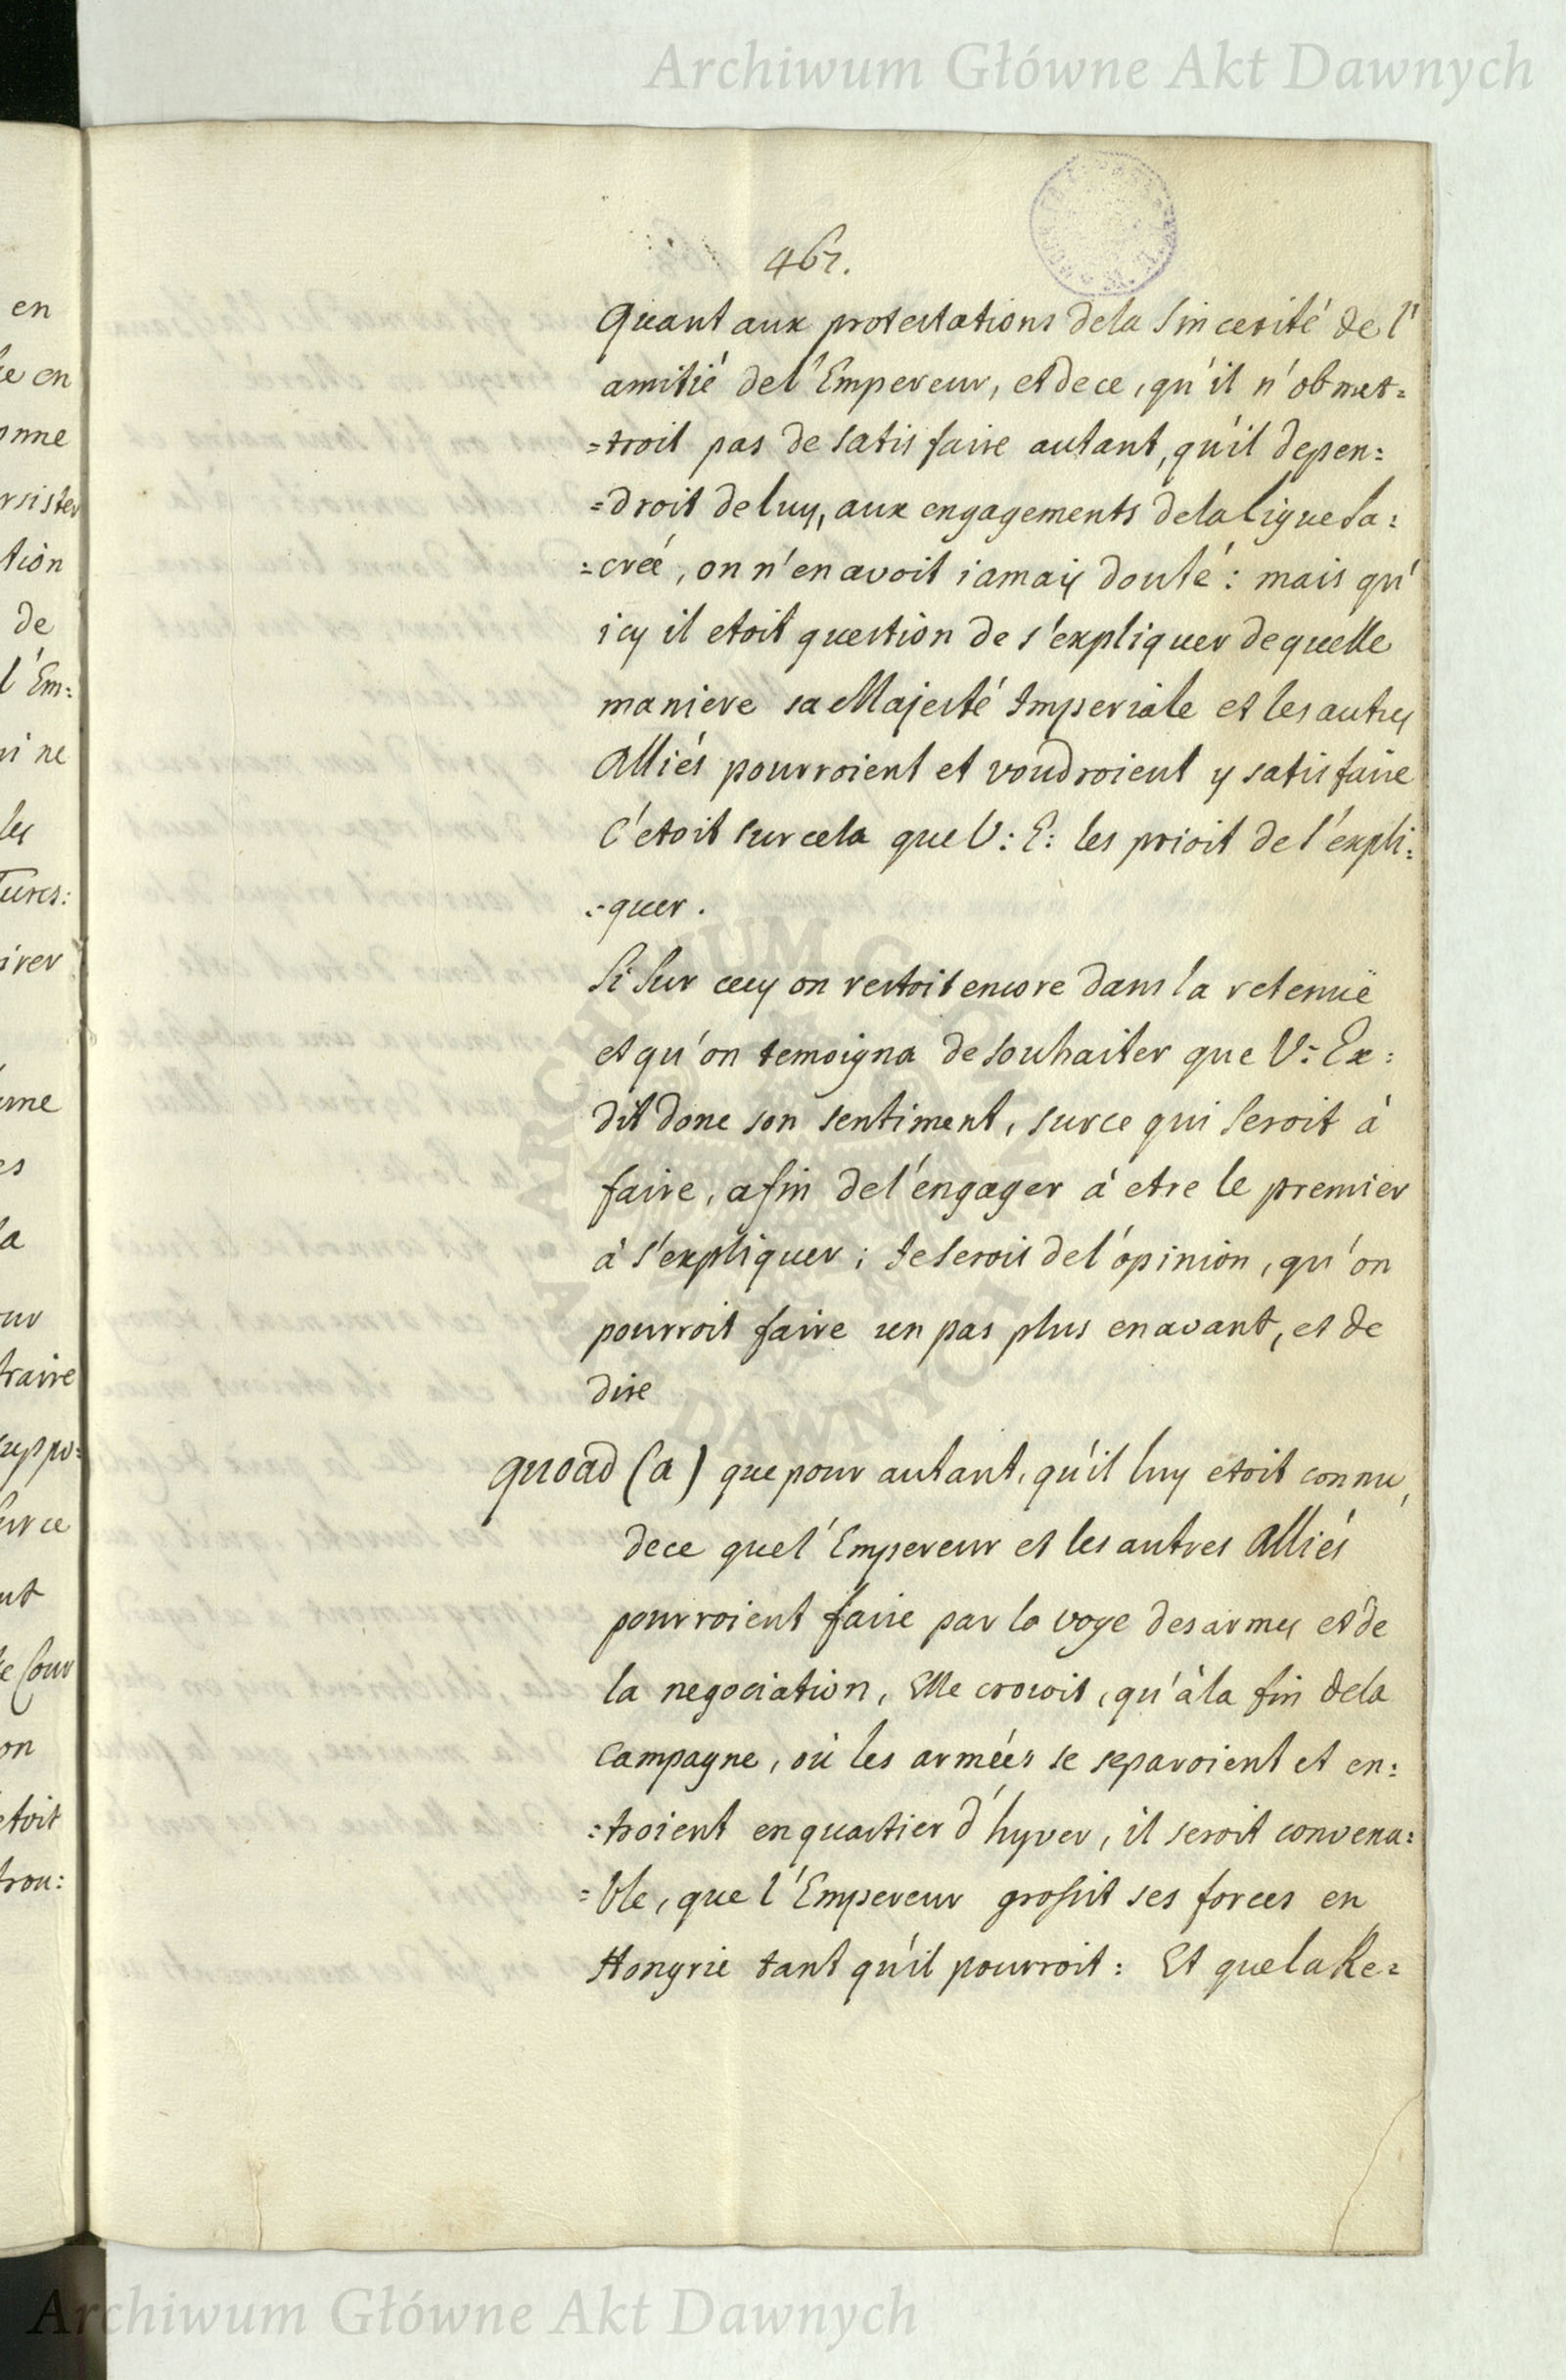 Archiwum Główne Akt Dawnych
467.
Quant aux protestations dela Sincerité de l'
amitié del'Empereur, et de ce, qu'il n'obmet=
=troit pas de Satisfaire autant, qu'il depen=
=droit deluy, aux engagements dela Ligue Sa=
=créé, on n'en avoit iamais douté: mais qu'
icy il etoit question de s'expliquer dequelle
maniere sa Majesté Imperiale et les autres
Alliés pourroient et voudroient y satisfaire
C'etoit sur cela que V: E: les prioit de l'expli=
=quer.
Si Sur cecy on restoit encore dans la retenuë
et qu'on temoigna de Souhaiter que V: Ex:
dit donc son sentiment, sur ce qui Seroit à
faire, afin del'engager à etre le premier
à s'expliquer; Je Serois del'opinion, qu'on
pourroit faire un pas plus enavant, et de
dire
quoad (a) que pour autant, qu'il luy etoit connu,
dece quel'Empereur et les autres Alliés
pourroient faire par la voye des armes et de
la negociation, Elle croioit, qu'à la fin dela
Campagne, où les armées se separoient et en=
=troient en quartier d'hyver, il seroit convena=
=ble, que l'Empereur grossit ses forces en
Hongrie tant qu'il pourroit: Et que la Re=
en
en
onne
rsister
tion
de
l'Em:
ne
les
Turcs:
irer
ume
es
la
our
traire
suppo=
Sur ce
Cour
on
etoit
trou:
ARCHIWUM GŁÓWNE AKT DAWNYCH
Archiwum Główne Akt Dawnych